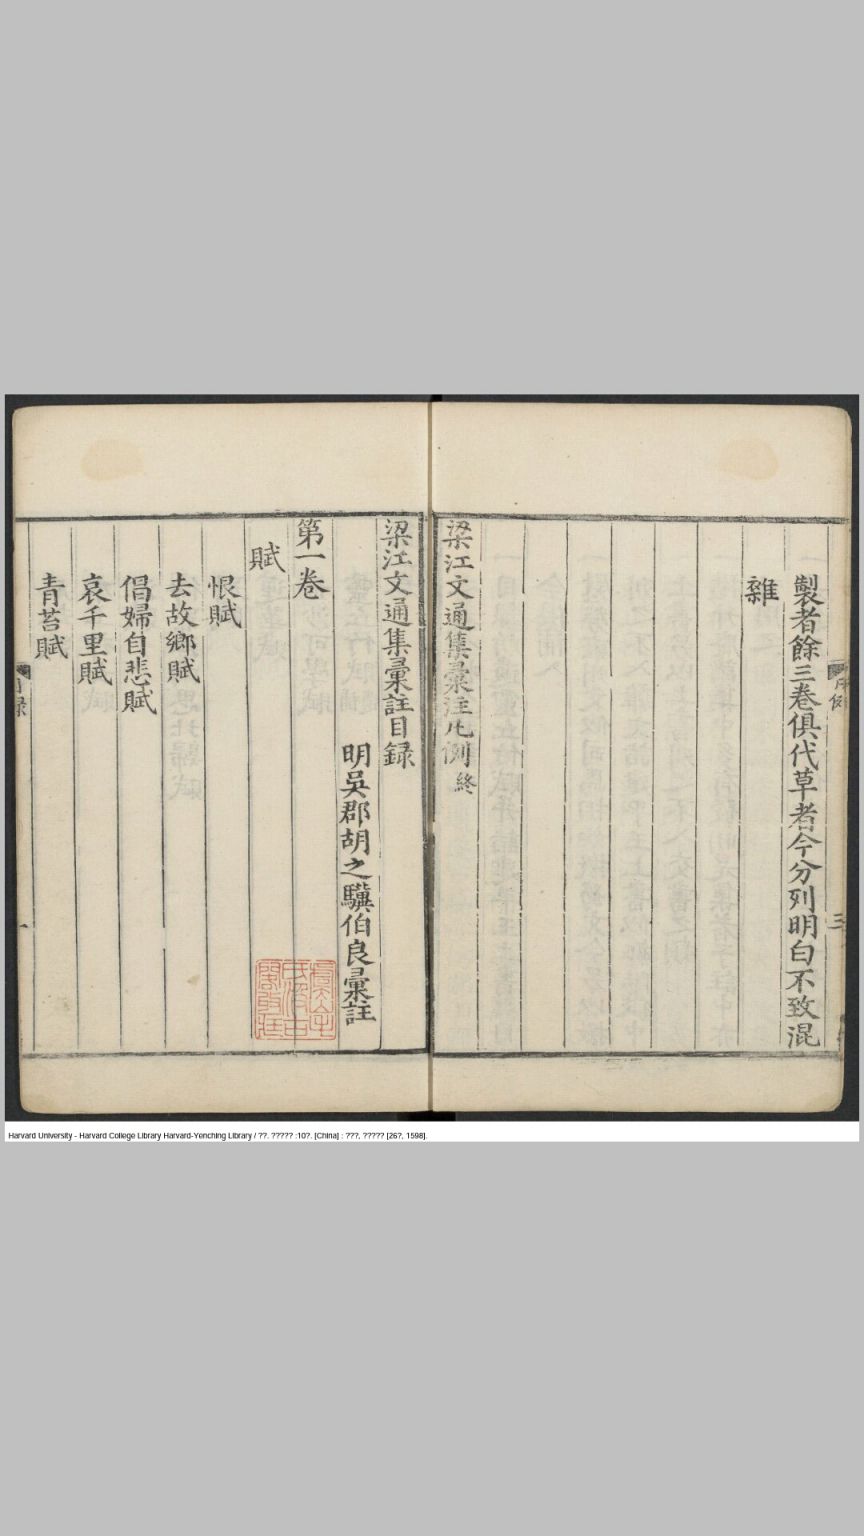 製者餘三卷俱代草者今分列明白不致混
雜
梁江文通集彙注凡例 終
梁江文通集彙註目録
明吳郡胡之驥伯良彙註
第一卷
賦
恨賦
去故鄉賦
倡婦自悲賦
哀千里賦
青苔賦
Harvard University - Harvard College Library Harvard-Yenching Library / ??. ????? :10?. [China] : ???, ????? [26?, 1598].